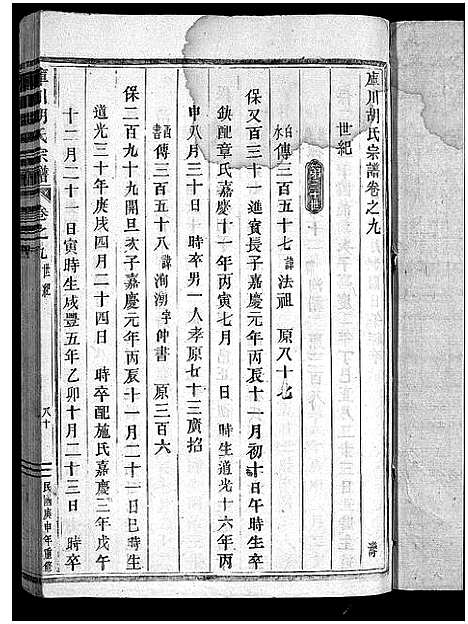 庫川胡氏宗譜卷之九
世紀
白水 傳三百五十七 諱 法祖 原八十七
保又百三十一進賓長子嘉慶元年丙辰十一月初十日午時生卒
缺配章氏嘉慶十一年丙寅七月 日 時生道光十六年丙
申八月三十日 時卒男一人孝原七十三廣招
酉書 傳三百五十八 諱 洵潮 字 仲書 原三百六
保二百九十九開旦次子嘉慶元年丙辰十一月二十一日巳時生
道光三十年庚戌四月二十四日 時卒配施氏嘉慶三年戊午
十二月二十一日寅時生咸豐五年乙卯十月二十三日 時卒
庫川胡氏宗譜 卷之九 世紀 八十 民國庚申年重修